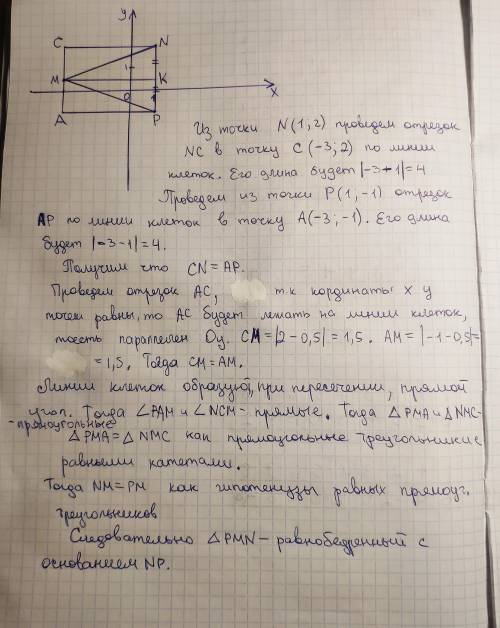 y
C
N
1
M
K
0
1
x
A
P
Из точки N(1,2) проведем отрезок
NC в точку C(-3;2) по линии
клеток. Его длина будет |-3-1|=4
Проведем из точки P(1,-1) отрезок
AP по линии клеток в точку A(-3;-1). Его длина
будет |-3-1|=4.
Получим что CN=AP.
Проведем отрезок AC, т.к кординаты x у
точек равны, то AC будет лежать на линии клеток,
тоесть параллелен Oy. CM=|2-0,5|=1,5. AM=|-1-0,5|=
=1,5. Тогда CM=AM.
Линии клеток образуют, при пересечении, прямой
угол. Тогда ∠PAM и ∠NCM-прямые. Тогда △PMA и △NMC-
-прямоугольные
△PMA=△NMC как прямоугольные треугольники с
равными катетами.
Тогда NM=PM как гипотенуззы равных прямоуг.
треугольников
Следовательно △PMN-равнобедренный с
основанием NP.